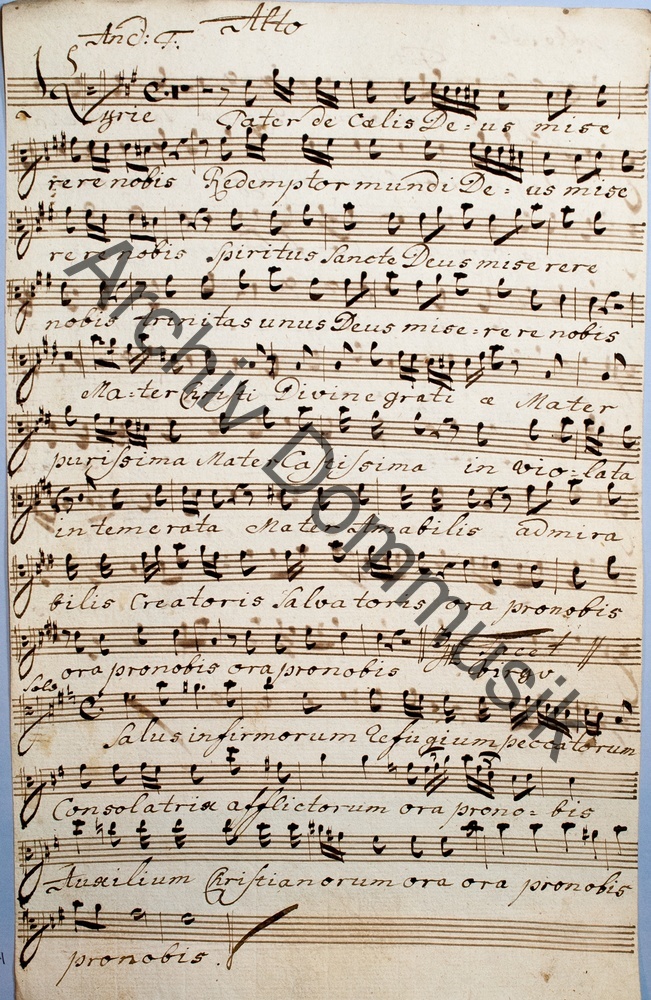 And: T. Alto
Kyrie Pater de Cælis De: us mise
rere nobis Redemptor mundi De: us mise
rere nobis Spiritus Sancte Deus mise rere
nobis trinitas unus Deus mise: re re nobis
Ma: ter Christi Divine grati æ Mater
purissima Mater Castissima in vio: lata
intemerata Mater Amabilis admira
bilis Creatoris Salvatoris ora pronobis
ora pronobis ora pronobis virgo tacet
Solo
Salus infirmorum Refugium peccatorum
Consolatrix afflictorum ora prono: bis
Auxilium Christianorum ora ora pronobis
pronobis.
Archiv Dommusik